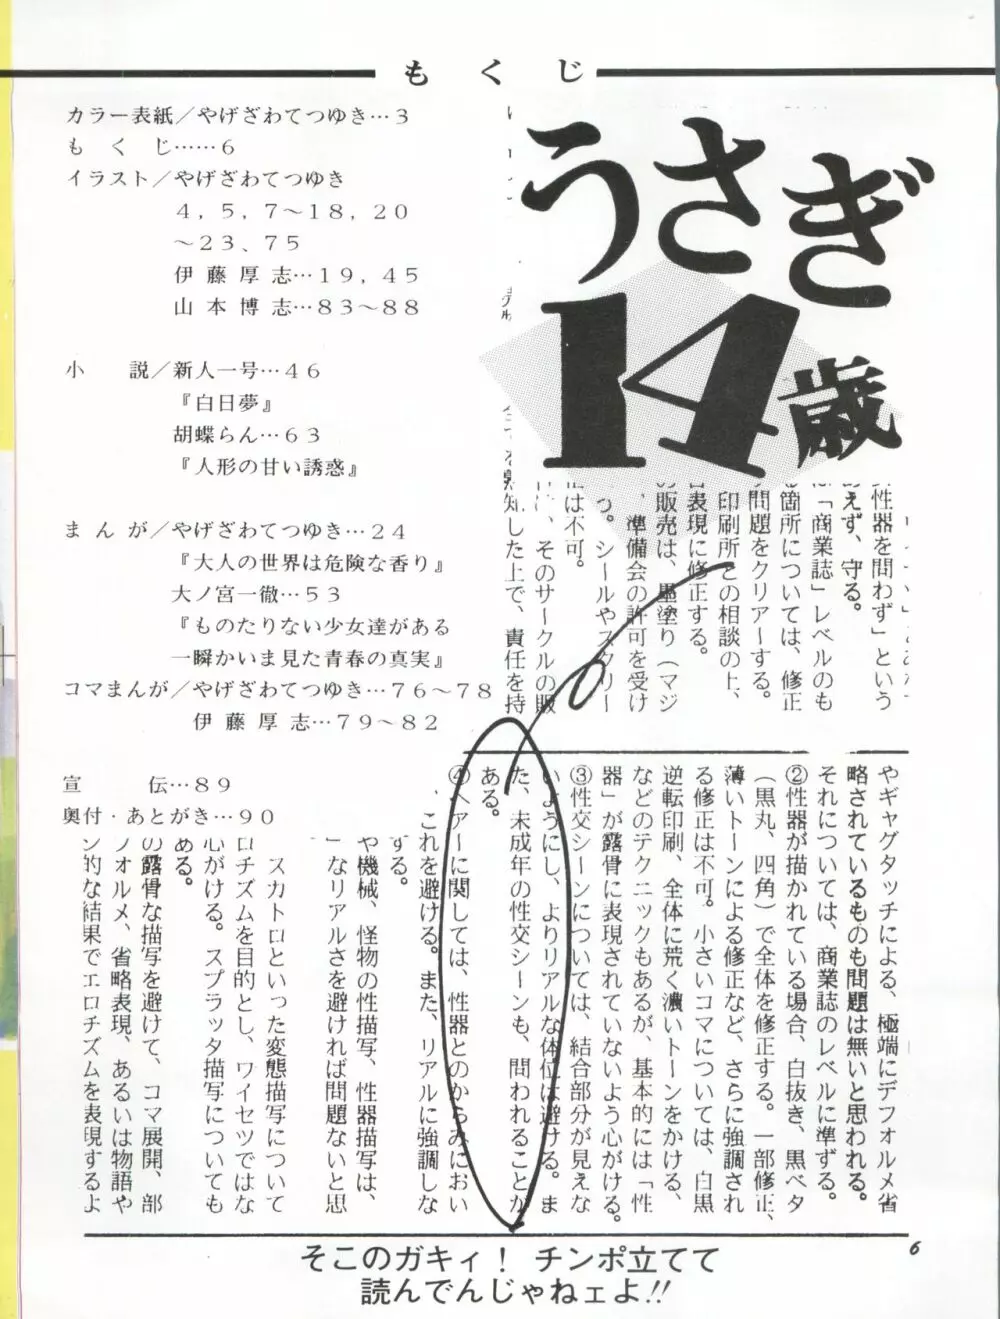 もくじ
カラー表紙／やげざわてつゆき…3
もくじ……6
イラスト／やげざわてつゆき
4, 5, 7～18, 20
～23、75
伊藤厚志…19, 45
山本博志…83～88
小説／新人一号…46
『白日夢』
胡蝶らん…63
『人形の甘い誘惑』
まんが／やげざわてつゆき…24
『大人の世界は危険な香り』
大ノ宮一徹…53
『ものたりない少女達がある
一瞬かいま見た青春の真実』
コマまんが／やげざわてつゆき…76～78
伊藤厚志…79～82
宣伝…89
奥付・あとがき…90
うさぎ
14歳
性器を問わず」という
あえず、守る。
「商業誌」レベルのも
箇所については、修正
問題をクリアーする。
印刷所との相談の上、
表現に修正する。
の販売は、墨塗り（マジ
、準備会の許可を受け
。シールやスクリー
は不可。
、そのサークルの販
知した上で、責任を持
やギャグタッチによる、極端にデフォルメ省
略されているものも問題は無いと思われる。
それについては、商業誌のレベルに準ずる。
②性器が描かれている場合、白抜き、黒ベタ
（黒丸、四角）で全体を修正する。一部修正、
薄いトーンによる修正など、さらに強調され
る修正は不可。小さいコマについては、白黒
逆転印刷、全体に荒く濃いトーンをかける、
などのテクニックもあるが、基本的には「性
器」が露骨に表現されていないよう心がける。
③性交シーンについては、結合部分が見えな
いようにし、よりリアルな体位は避ける。ま
た、未成年の性交シーンも、問われることが
ある。
④ヘアーに関しては、性器とのからみにおい
これを避ける。また、リアルに強調しな
する。
や機械、怪物の性描写、性器描写は、
なリアルさを避ければ問題ないと思
スカトロといった変態描写について
ロチズムを目的とし、ワイセツではな
心がける。スプラッタ描写についても
ある。
の露骨な描写を避けて、コマ展開、部
フォルメ、省略表現、あるいは物語や
ン的な結果でエロチズムを表現するよ
そこのガキィ！ チンポ立てて
読んでんじゃねェよ!!
6